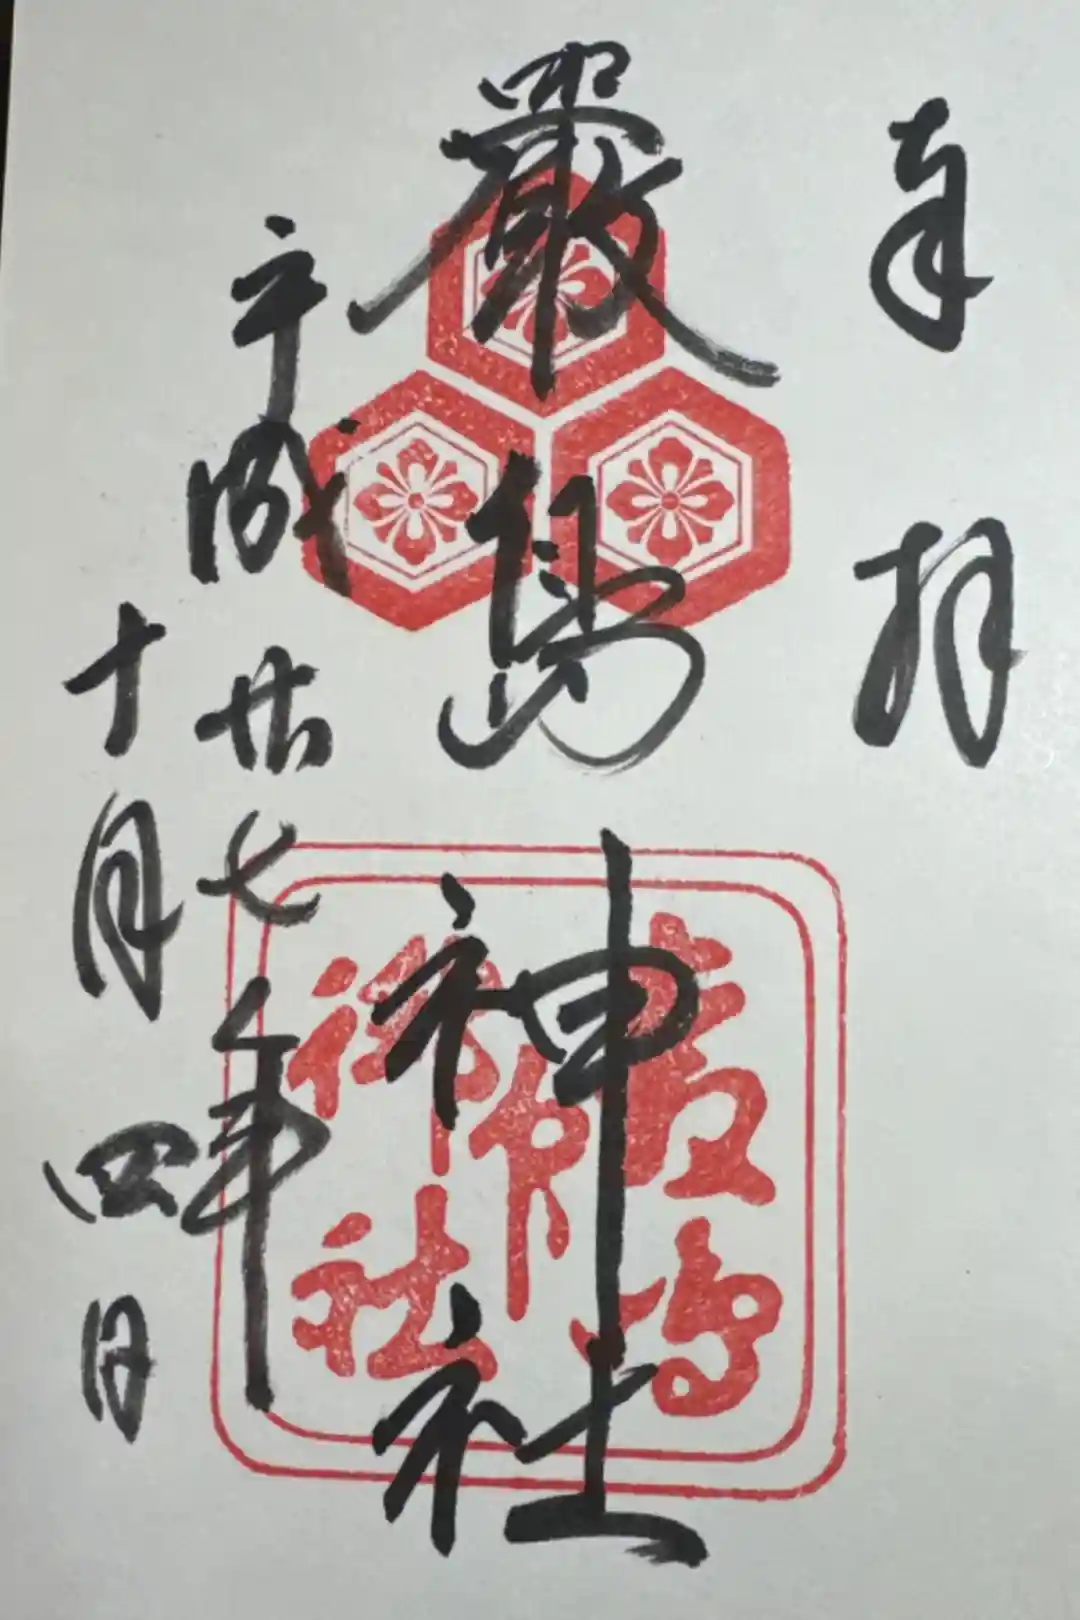 奉拝
嚴島神社
嚴島神社
平成廿七年
十月四日